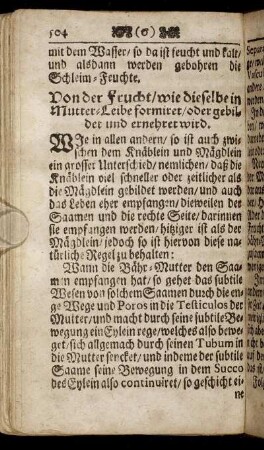 504 (σ)
mit dem Wasser/ so da ist feucht und kalt/
und alsdann werden gebahren die
Schleim-Fruchte.
Von der Frucht/ wie dieselbe in
Mutter-Leibe formiret/ oder gebil-
det und ernehret wird.
WIe in allen andern/ so ist auch zwi-
schen dem Knäblein und Mägdlein
ein grosser Unterschied/ nemlichen/ daß die
Knäblein viel schneller oder zeitlicher als
die Mägdlein gebildet werden/ und auch
das Leben eher empfangen/ dieweilen der
Saamen und die rechte Seite/ darinnen
sie empfangen werden/ hitziger ist als der
Mägdlein/ jedoch so ist hiervon diese na-
türliche Regel zu behalten:
Wann die Bähr-Mutter den Saa-
men empfangen hat/ so gehet das subtile
Wesen von solchem Saamen durch die en-
ge Wege und Poros in die Testiculos der
Mutter/ und macht durch seine subtile Be-
wegung ein Eylein rege/ welches also bewe-
get/ sich allgemach durch seinen Tubum in
die Mutter sencket/ und indeme der subtile
Saame seine Bewegung in dem Succo
des Eylein also continuiret/ so geschicht ei-
ne